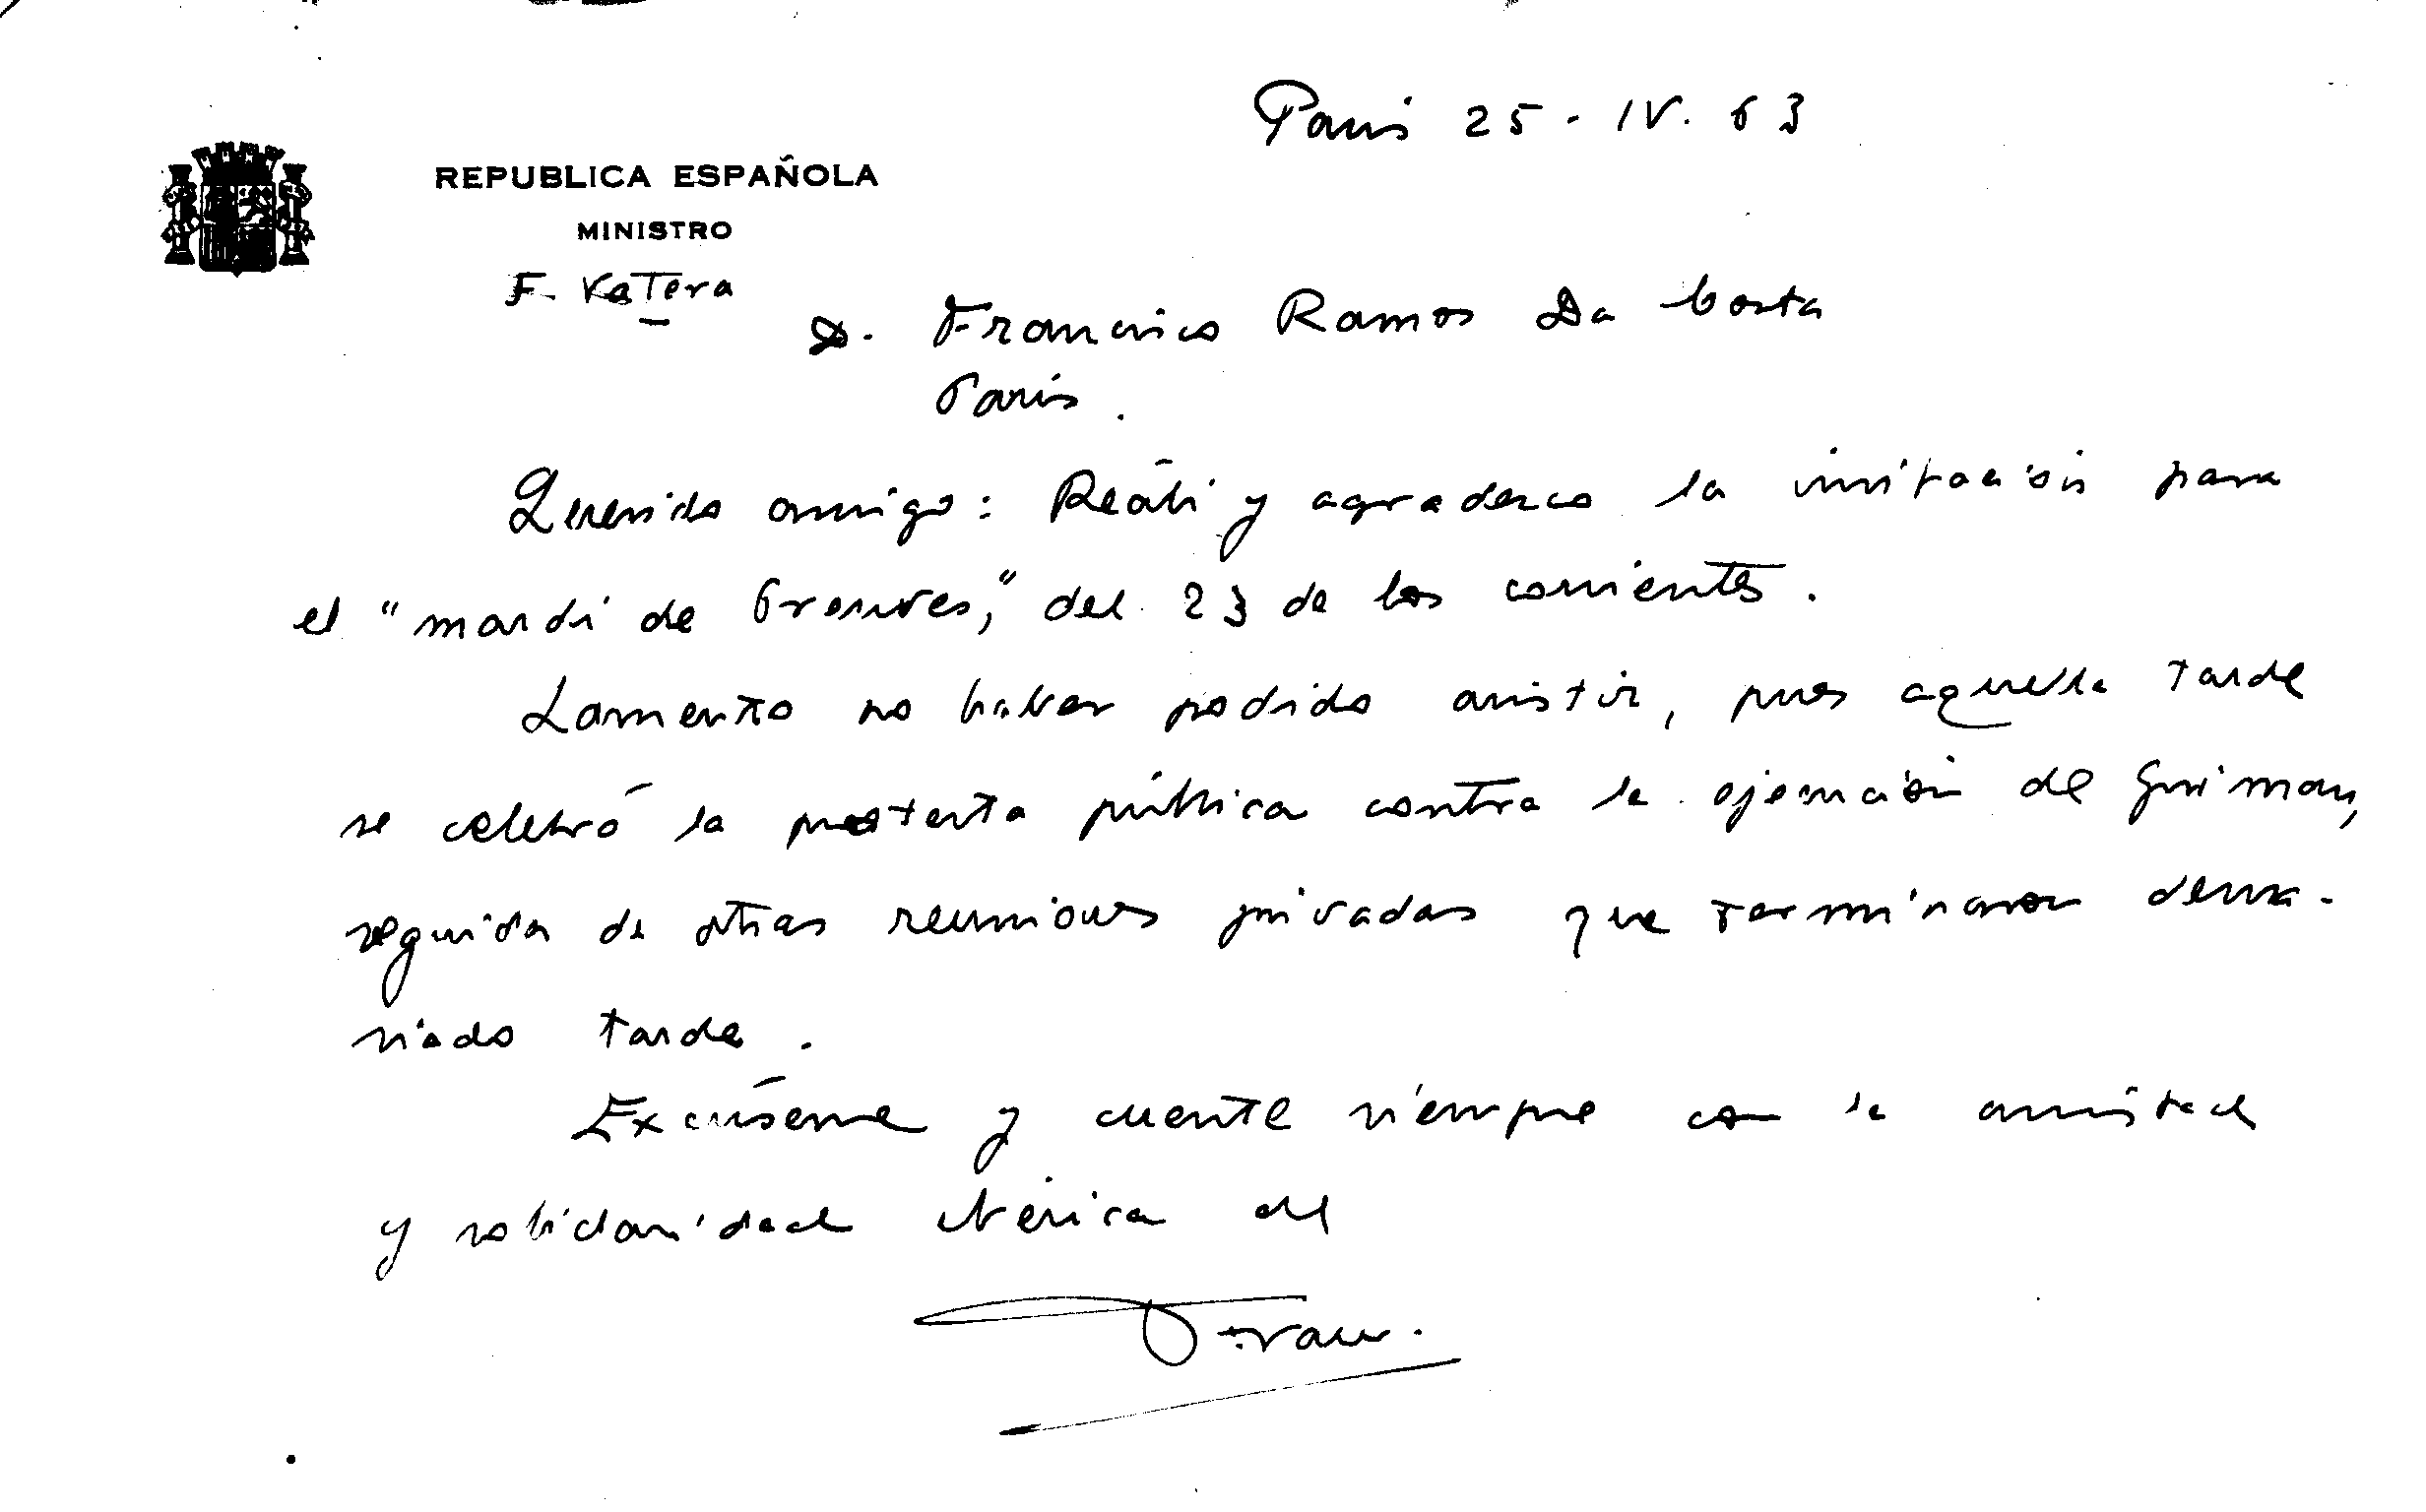 Paris 25 - IV. 63
REPUBLICA ESPAÑOLA
MINISTRO
F. Valera
D. Francisco Ramos Da Costa
Paris.
Querido amigo: Recibí y agradezco la invitación para
el "mardi de Preuves," del 23 de los corrientes.
Lamento no haber podido asistir, pues aquella tarde
se celebró la protesta pública contra la ejecución de Grimau,
seguida de otras reuniones privadas que terminaron dema-
siado tarde.
Excúseme y cuente siempre con la amistad
y solidaridad ibérica del